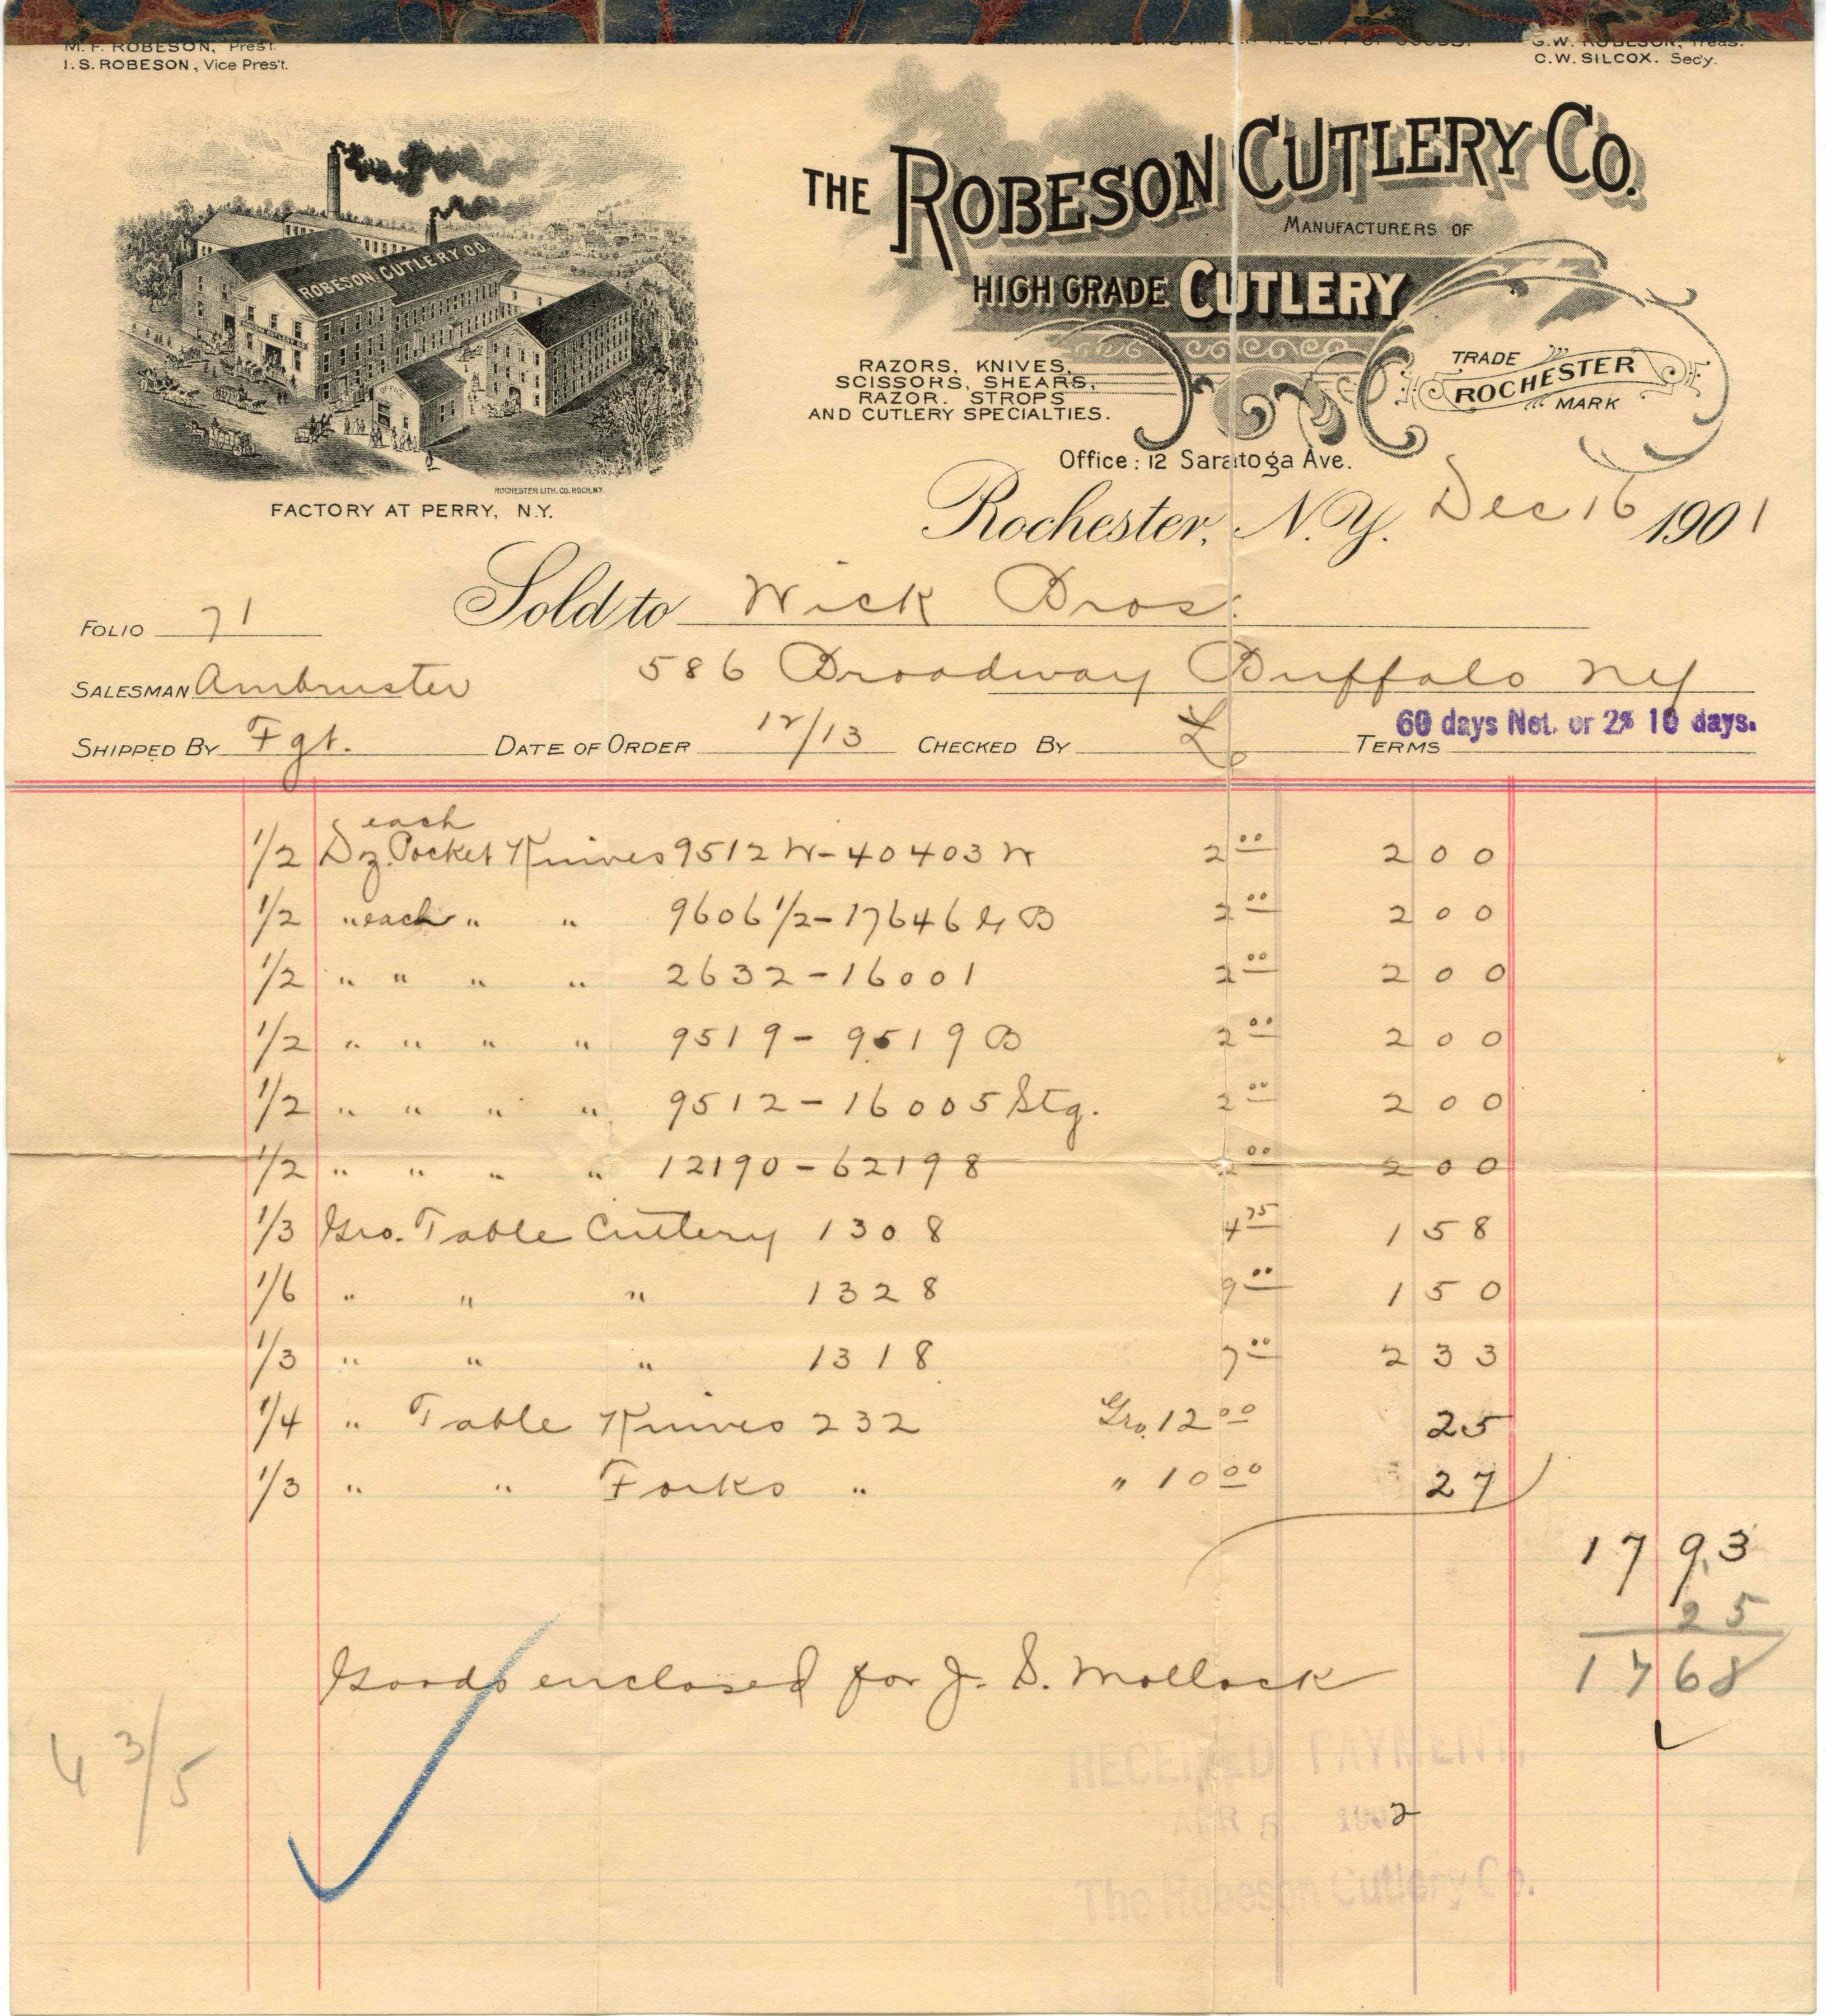 M. F. ROBESON, Pres't.
I. S. ROBESON, Vice Pres't.
G. W. ROBESON, Treas.
C. W. SILCOX. Sec'y.
THE ROBESON CUTLERY CO.
MANUFACTURERS OF
HIGH GRADE CUTLERY
RAZORS, KNIVES,
SCISSORS, SHEARS,
RAZOR. STROPS
AND CUTLERY SPECIALTIES.
TRADE
ROCHESTER
MARK
ROBESON CUTLERY CO.
OFFICE
ROCHESTER LITH. CO. ROCH, N.Y.
FACTORY AT PERRY, N.Y.
Office: 12 Saratoga Ave.
Rochester, N.Y. Dec 16 1901
Sold to Wick Bros.
FOLIO 71
SALESMAN Ambruster 586 Broadway Buffalo NY
60 days Net. or 2% 10 days.
SHIPPED BY Fgt. DATE OF ORDER 12/13 CHECKED BY TERMS
each
1/2 Dz. Pocket Knives 9512 W-40403 W 2 00 2 00
1/2 " each " " 9606 1/2-17646 G B 2 00 2 00
1/2 " " " " 2632-16001 2 00 2 00
1/2 " " " " 9519-9519 B 2 00 2 00
1/2 " " " " 9512-16005 Stg. 2 00 2 00
1/2 " " " " 12190-62198 2 00 2 00
1/3 Gro. Table Cutlery 1308 4 75 1 58
1/6 " " " 1328 9 00 1 50
1/3 " " " 1318 7 00 2 33
1/4 " Table Knives 232 Gro. 12 00 25
1/3 " " Forks " " 10 00 27
17 93
25
17 68
Goods enclosed for J. S. Mollock
4 3/5
RECEIVED PAYMENT,
APR 5 1902
The Robeson Cutlery Co.